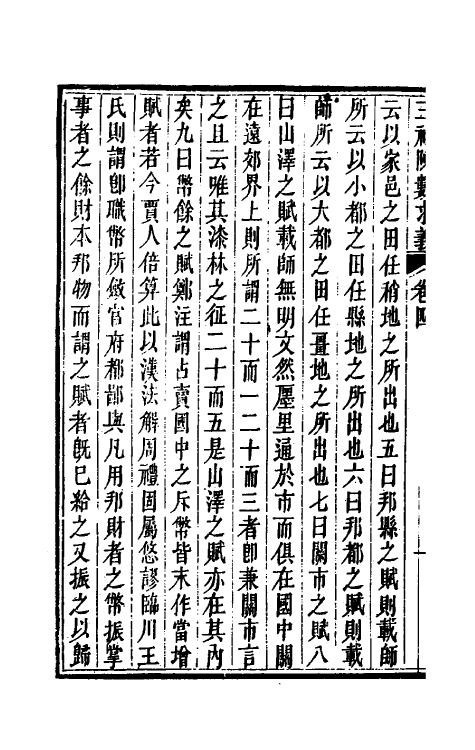 三禮陳數求義 卷四
云以家邑之田任稍地之所出也五曰邦縣之賦則載師
所云以小都之田任縣地之所出也六曰邦都之賦則載
師所云以大都之田任畺地之所出也七曰關市之賦八
曰山澤之賦載師無明文然廛里逼於市而俱在國中關
在遠郊界上則所謂二十而一二十而三者卽兼關市言
之且云唯其漆林之征二十而五是山澤之賦亦在其內
矣九曰幣餘之賦鄭注謂占賣國中之斥幣皆末作當增
賦者若今賈人倍算此以漢法解周禮固屬悠謬臨川王
氏則謂卽職幣所斂官府都鄙與凡用邦財者之幣振掌
事者之餘財本邦物而謂之賦者旣已給之又振之以歸